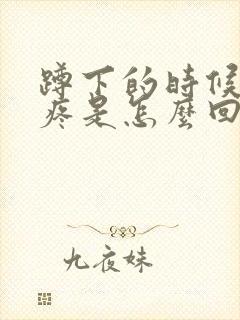 蹲下的時候
疼是怎麼回
九夜妹